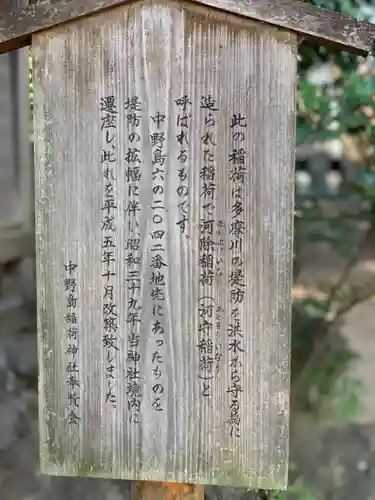 此の稲荷は多摩川の堤防を洪水から守る為に
造られた稲荷で河除稲荷（河守稲荷）と
呼ばれるものです。
中野島六の二〇四二番地先にあったものを
堤防の拡幅に伴い、昭和三十九年当神社境内に
遷座し、此れを平成五年十月改築致しました。
中野島稲荷神社奉賛会